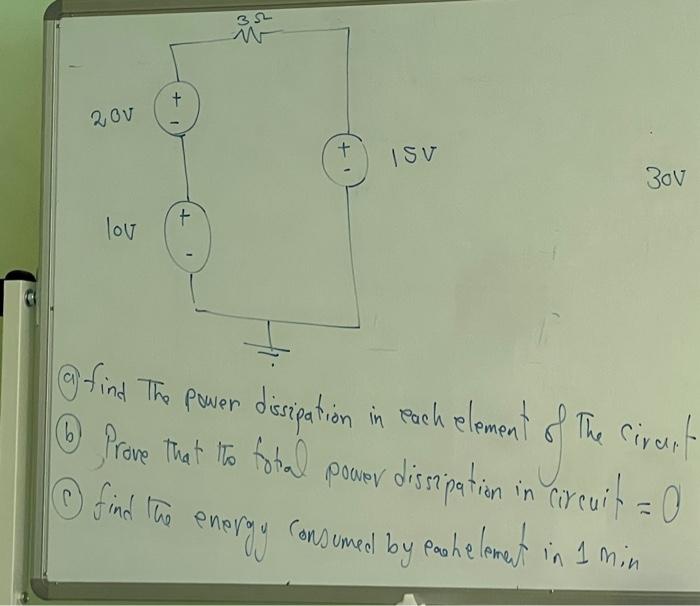 3Ω
+
20V
-
+
15V
-
30V
+
10V
-
(a) find The power dissipation in each element of The circuit
(b) Prove That The total power dissipation in circuit = 0
(c) find The energy consumed by each element in 1 min